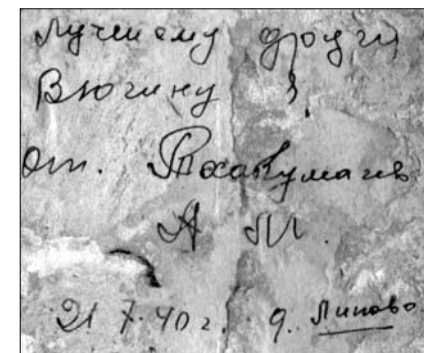 Лучшему другу
Вьюгину
от. Тхакумачев
А М.
21 7.40 г. д. Липово.